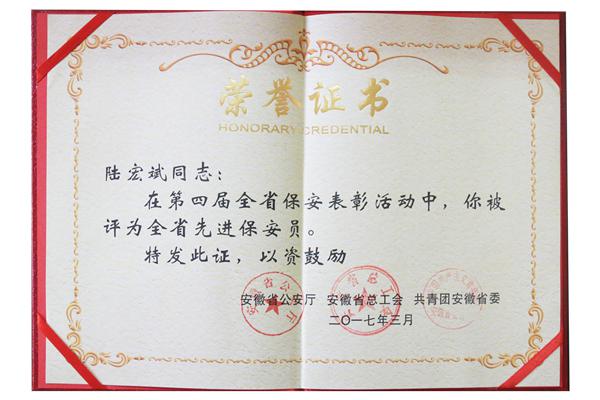 荣誉证书
HONORARY CREDENTIAL
陆宏斌同志：
在第四届全省保安表彰活动中，你被
评为全省先进保安员。
特发此证，以资鼓励
安徽省公安厅 安徽省总工会 共青团安徽省委
二〇一七年三月
安徽省公安厅